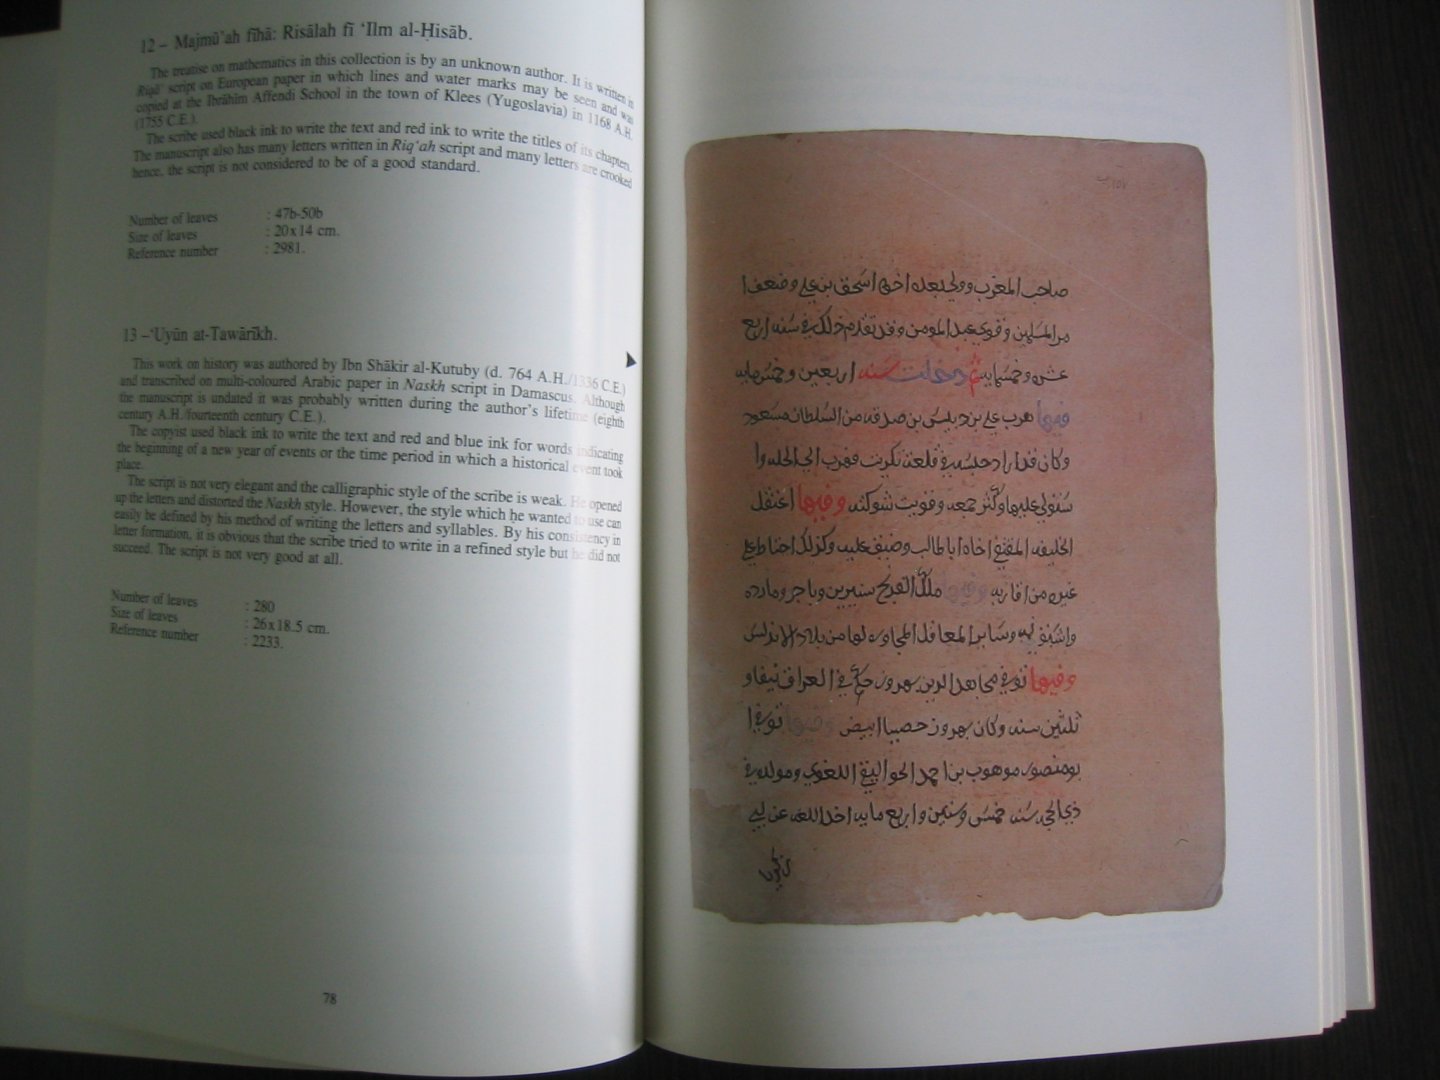 12 – Majmū'ah fīhā: Risālah fī 'Ilm al-Ḥisāb.
The treatise on mathematics in this collection is by an unknown author. It is written in
Riqā' script on European paper in which lines and water marks may be seen and was
copied at the Ibrāhīm Affendi School in the town of Klees (Yugoslavia) in 1168 A.H.
(1755 C.E.).
The scribe used black ink to write the text and red ink to write the titles of its chapters.
The manuscript also has many letters written in Riq'ah script and many letters are crooked
hence, the script is not considered to be of a good standard.
Number of leaves : 47b-50b
Size of leaves : 20x14 cm.
Reference number : 2981.
13 –'Uyūn at-Tawārīkh.
This work on history was authored by Ibn Shākir al-Kutuby (d. 764 A.H./1336 C.E.)
and transcribed on multi-coloured Arabic paper in Naskh script in Damascus. Although
the manuscript is undated it was probably written during the author's lifetime (eighth
century A.H./fourteenth century C.E.).
The copyist used black ink to write the text and red and blue ink for words indicating
the beginning of a new year of events or the time period in which a historical event took
place.
The script is not very elegant and the calligraphic style of the scribe is weak. He opened
up the letters and distorted the Naskh style. However, the style which he wanted to use can
easily be defined by his method of writing the letters and syllables. By his consistency in
letter formation, it is obvious that the scribe tried to write in a refined style but he did not
succeed. The script is not very good at all.
Number of leaves : 280
Size of leaves : 26x18.5 cm.
Reference number : 2233.
78
صاحب المغرب وولي بعده اخوه اسحق بن علي وضعف ا
مر المسلمين وقوي عبد المومن وقد تقدم ذلك في سنه اربع
عشره وخمسمايه ثم دخلت سنه اربعين وخمس مايه
وفيها هرب علي بن دبيس بن صدقه من السلطان مسعود
وكان قد اراد حبسه في قلعة تكريت فهرب الي الحله وا
ستولي عليها وكثر جمعه وقويت شوكته وفيها اعتقل
الخليفه المقتفي اخاه اباطالب وضيق عليه وكذلك احتاط علي
غيره من اقاربه وفيها ملك الفرنج سنيرين وباجر ومارده
واشبونه وساير المعاقل المجاوره لها من بلاد الاندلس
وفيها توفي مجاهد الدين بهروز حكم في العراق نيفا و
ثلثين سنه وكان بهروز خصيا ابيض وفيها توفي ا
بو منصور موهوب بن احمد الجواليقي اللغوي ومولده في
ذي الحجه سنه خمس وستين واربع مايه اخذ اللغه عن ابي
زكريا